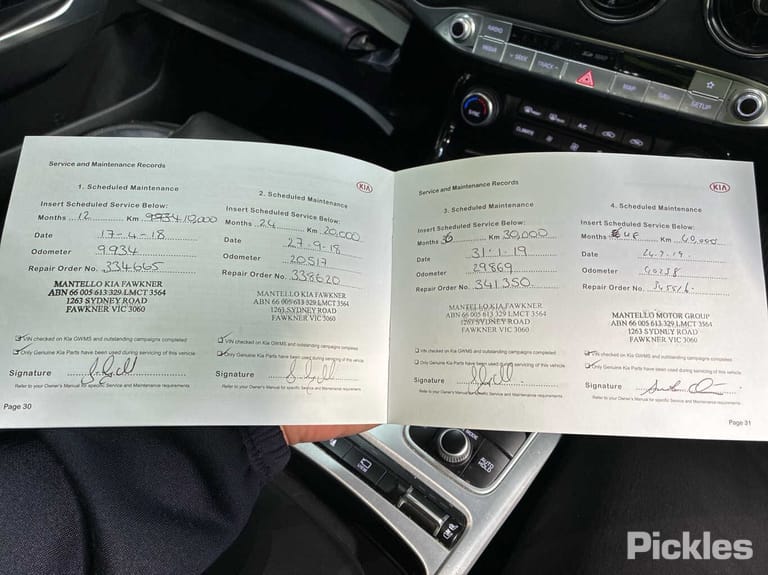 RADIO
MEDIA
SEEK
TRACK
MAP
NAV
SETUP
SYNC
CLIMATE
A/C
Service and Maintenance Records
KIA
1. Scheduled Maintenance
Insert Service Schedule Below:
Months 12 Km 9934 10,000
Date 17-4-18
Odometer 9934
Repair Order No. 334665
MANTELLO KIA FAWKNER
ABN 66 005 613 329 LMCT 3564
1263 SYDNEY ROAD
FAWKNER VIC 3060
VIN checked on Kia GWMS and outstanding campaigns completed
Only Genuine Kia Parts have been used during servicing of this vehicle
Signature
Refer to your Owner's Manual for specific Service and Maintenance requirements
Page 30
2. Scheduled Maintenance
Insert Service Schedule Below:
Months 24 Km 20,000
Date 27-9-18
Odometer 20517
Repair Order No. 338620
MANTELLO KIA FAWKNER
ABN 66 005 613 329 LMCT 3564
1263 SYDNEY ROAD
FAWKNER VIC 3060
VIN checked on Kia GWMS and outstanding campaigns completed
Only Genuine Kia Parts have been used during servicing of this vehicle
Signature
Refer to your Owner's Manual for specific Service and Maintenance requirements
Service and Maintenance Records
KIA
3. Scheduled Maintenance
Insert Service Schedule Below:
Months 36 Km 30,000
Date 31-1-19
Odometer 29869
Repair Order No. 341350
MANTELLO KIA FAWKNER
ABN 66 005 613 329 LMCT 3564
1263 SYDNEY ROAD
FAWKNER VIC 3060
VIN checked on Kia GWMS and outstanding campaigns completed
Only Genuine Kia Parts have been used during servicing of this vehicle
Signature
Refer to your Owner's Manual for specific Service and Maintenance requirements
4. Scheduled Maintenance
Insert Service Schedule Below:
Months 48 Km 40,000
Date 24.7.19
Odometer 40238
Repair Order No. 345516
MANTELLO MOTOR GROUP
ABN 66 005 613 329 LMCT 3564
1263 SYDNEY ROAD
FAWKNER VIC 3060
VIN checked on Kia GWMS and outstanding campaigns completed
Only Genuine Kia Parts have been used during servicing of this vehicle
Signature
Refer to your Owner's Manual for specific Service and Maintenance requirements
Page 31
MODE
AUTO HOLD
VIEW
Pickles